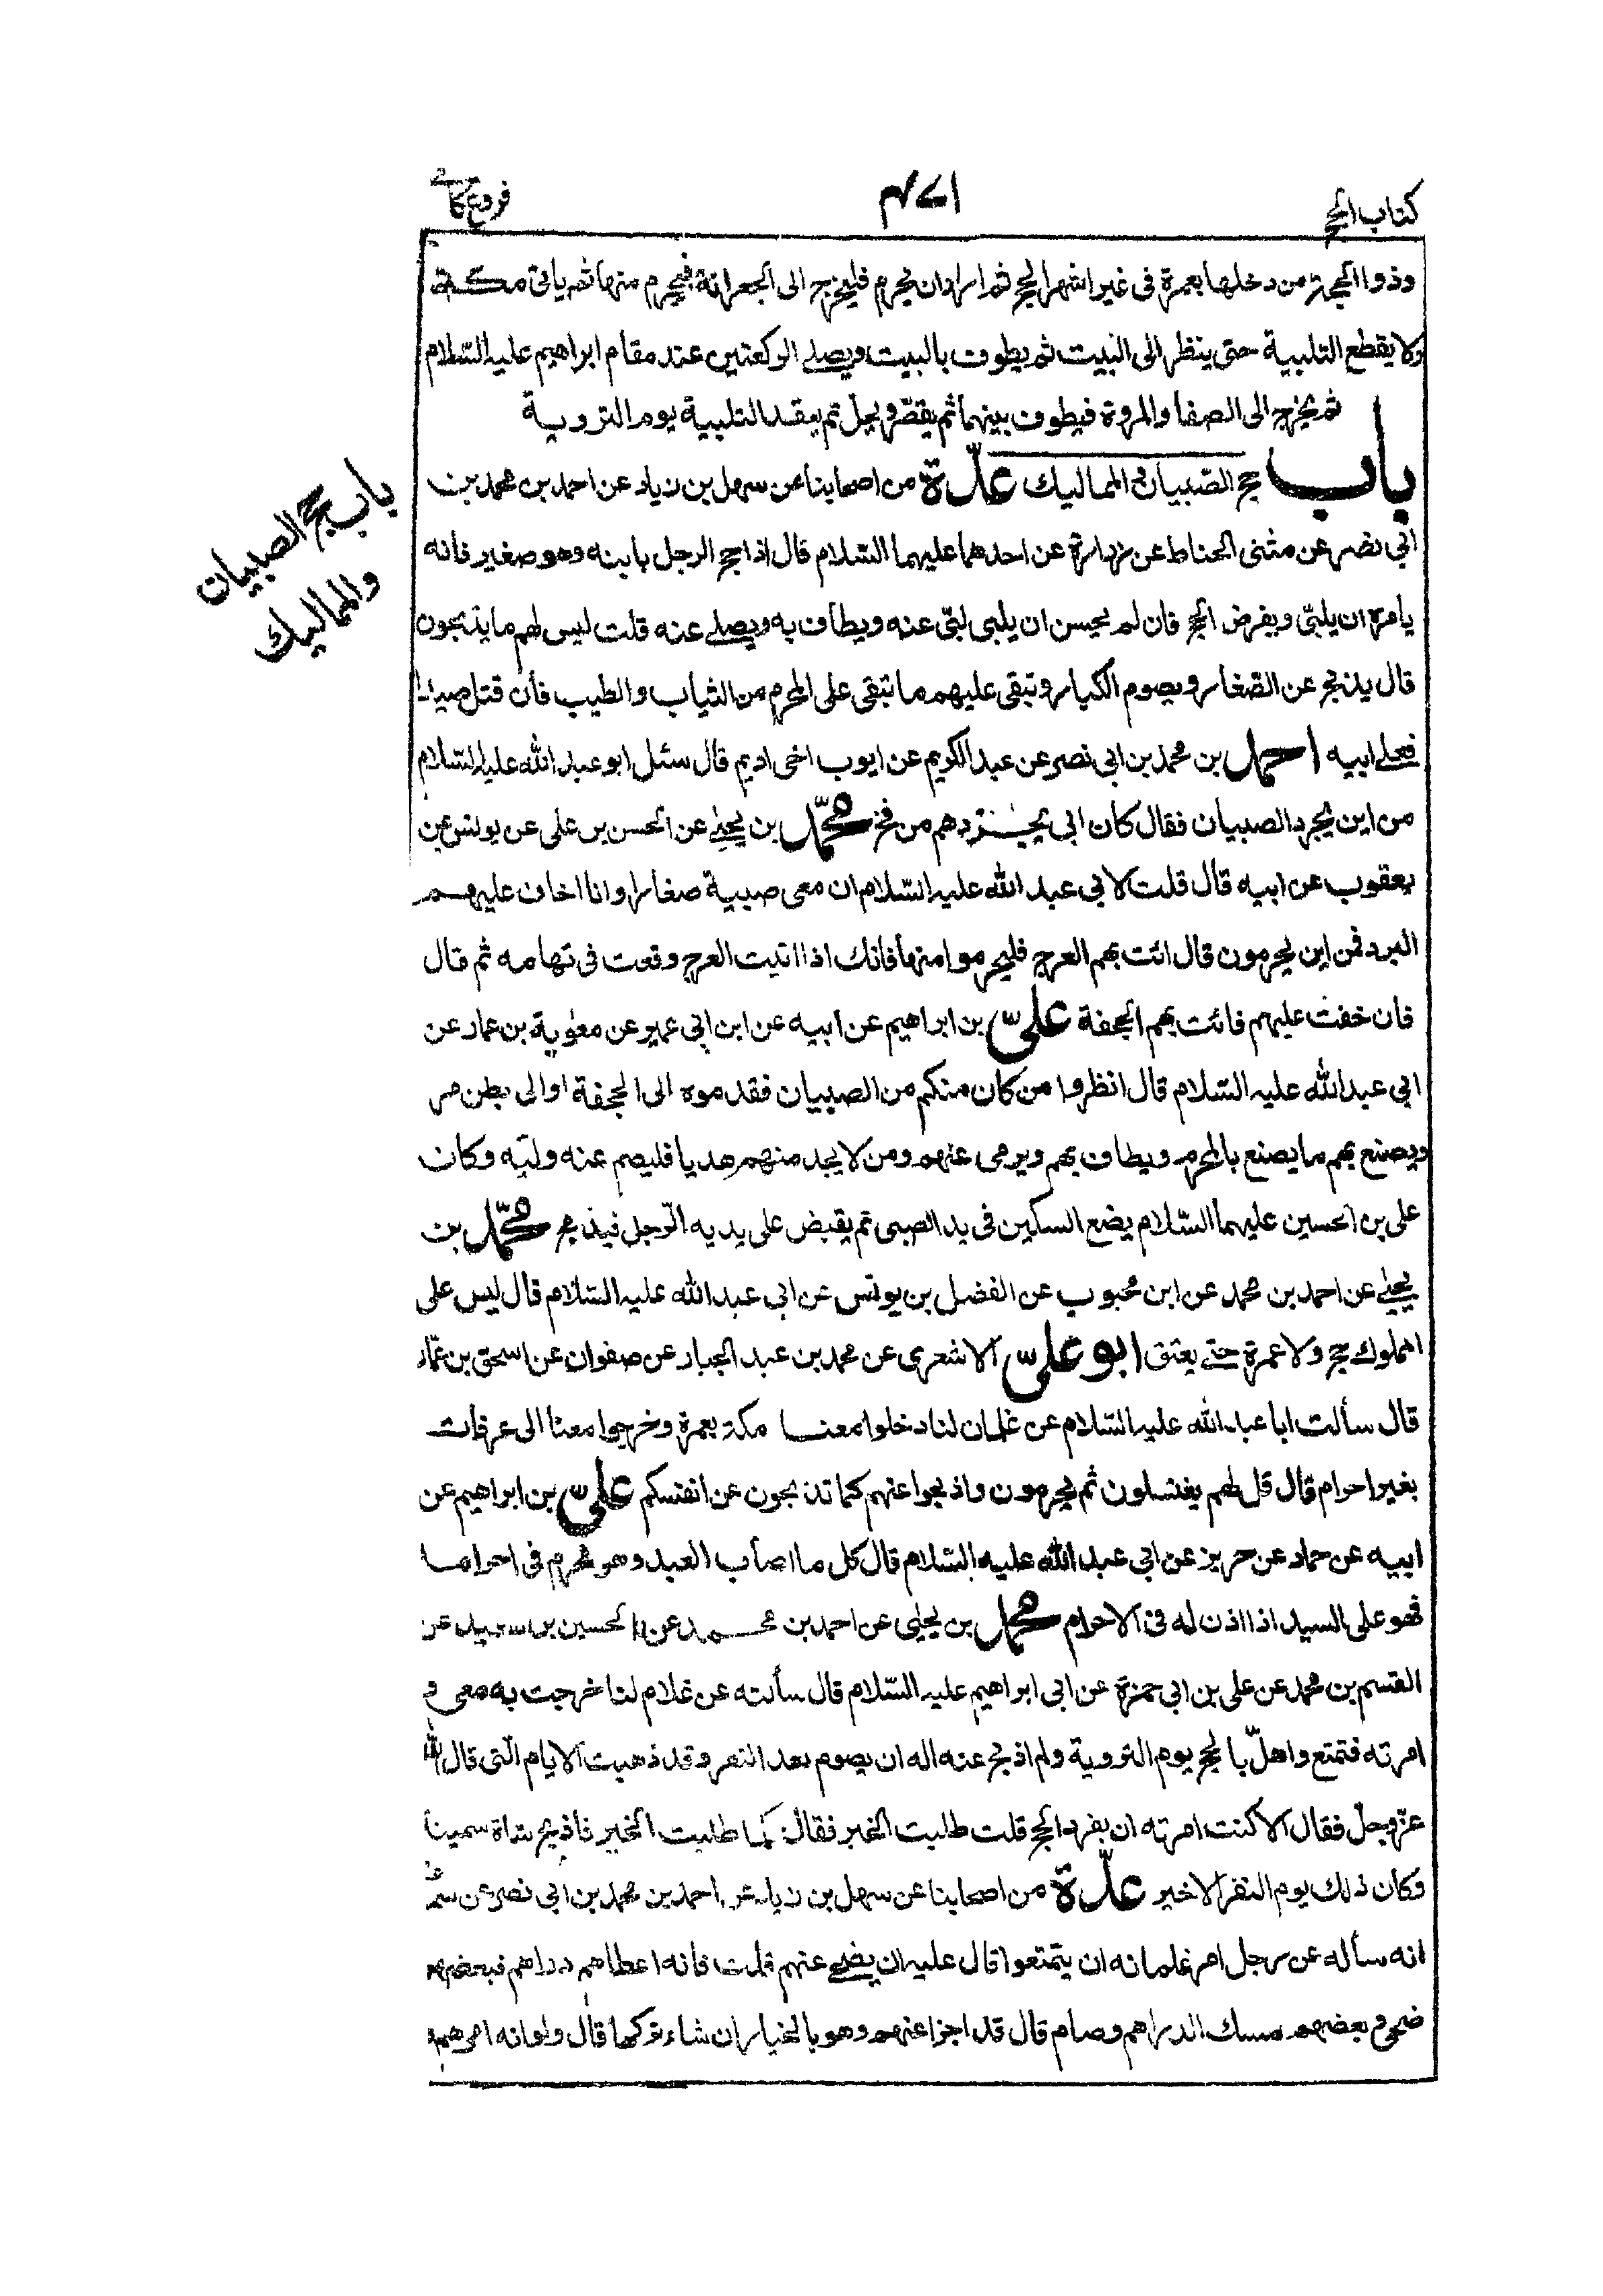 كتاب الحج
فروع كافي
وذو الحجة من دخلها بعمرة فى غير اشهر الحج ثم اراد ان يحرم فليخرج الى الجعرانة فيحرم منها ثم ياتى مكة
ولا يقطع التلبية حتى ينظر الى البيت ثم يطوف بالبيت ويصلے الركعتين عند مقام ابراهيم عليه السّلام
ثم يخرج الى الصفا والمروة فيطوف بينهما ثم يقصّر ويحلّ ثم يعقد التلبية يوم التروية
باب حج الصّبيان والمماليك عدّة من اصحابنا عن سهل بن زياد عن احمد بن محمد بن
باب حج الصبيان
والمماليك
ابي نصر عن مثنى الحناط عن زرارة عن احدهما عليهما السّلام قال اذا حج الرجل بابنه وهو صغير فانه
يامره ان يلبّى ويفرض الحج فان لم يحسن ان يلبى لبّى عنه ويطاف به ويصلے عنه قلت ليس لهم ما يذبحون
قال يذبح عن الصّغار ويصوم الكبار وتبقى عليهم ما تبقى على المحرم من الثياب والطيب فان قتل صيدا
فعلے ابيه احمد بن محمد بن ابى نصر عن عبد الكريم عن ايوب اخى اديم قال سئل ابو عبد الله عليه السّلام
من اين يجرد الصبيان فقال كان ابى يجردهم من فخ محمّد بن يحيے عن الحسن بن على عن يونس بن
يعقوب عن ابيه قال قلت لابي عبد الله عليه السّلام ان معى صبية صغارا وانا اخاف عليهم
البرد فمن اين يحرمون قال ائت بهم العرج فليحرموا منها فانك اذا اتيت العرج وقعت فى تهامه ثم قال
فان خفت عليهم فائت بهم الجحفة علىّ بن ابراهيم عن ابيه عن ابن ابي عمير عن معوية بن عمار عن
ابي عبد الله عليه السّلام قال انظروا من كان منكم من الصبيان فقدموه الى الجحفة او الى بطن مر
ويصنع بهم ما يصنع بالمحرم ويطاف بهم ويرمى عنهم ومن لا يجد منهم هديا فليصم عنه وليّه وكان
على بن الحسين عليهما السّلام يضع السكين فى يد الصبى ثم يقبض على يديه الرّجل فيذبح محمّد بن
يحيے عن احمد بن محمد عن ابن محبوب عن الفضل بن يونس عن ابي عبد الله عليه السّلام قال ليس على
المملوك حج ولا عمرة حتے يعتق ابو علىّ الاشعرى عن محمد بن عبد الجبار عن صفوان عن اسحق بن عمّار
قال سألت ابا عبد الله عليه السّلام عن غلمان لنا دخلوا معنا مكة بعمرة وخرجوا معنا الى عرفات
بغير احرام قال قل لهم يغتسلون ثم يحرمون واذبحوا عنهم كما تذبحون عن انفسكم علىّ بن ابراهيم عن
ابيه عن حماد عن حريز عن ابي عبد الله عليه السّلام قال كل ما اصاب العبد وهو محرم فى احرامه
فهو على السيد اذا اذن له فى الاحرام محمّد بن يحيى عن احمد بن محمد عن الحسين بن سعيد عن
القسم بن محمد عن على بن ابي حمزة عن ابى ابراهيم عليه السّلام قال سألته عن غلام لنا خرجت به معى و
امرته فتمتع واهلّ بالحج يوم التروية ولم اذبح عنه اله ان يصوم بعد النفر وقد ذهبت الايام الّتى قال الله
عزّ وجلّ فقال الا كنت امرته ان يفرد الحج قلت طلبت الخير فقال كما طلبت الخير فاذبح شاة سمينة
وكان ذلك يوم النفر الاخير عدّة من اصحابنا عن سهل بن زياد عن احمد بن محمد بن ابي نصر عن
انه سأله عن رجل امر غلمانه ان يتمتعوا قال عليه ان يضحے عنهم قلت فانه اعطاهم دراهم فبعضهم
ضحى وبعضهم مسك الدراهم وصام قال قد اجزا عنهم وهو بالخيار ان شاء تركها قال ولو انه امرهم